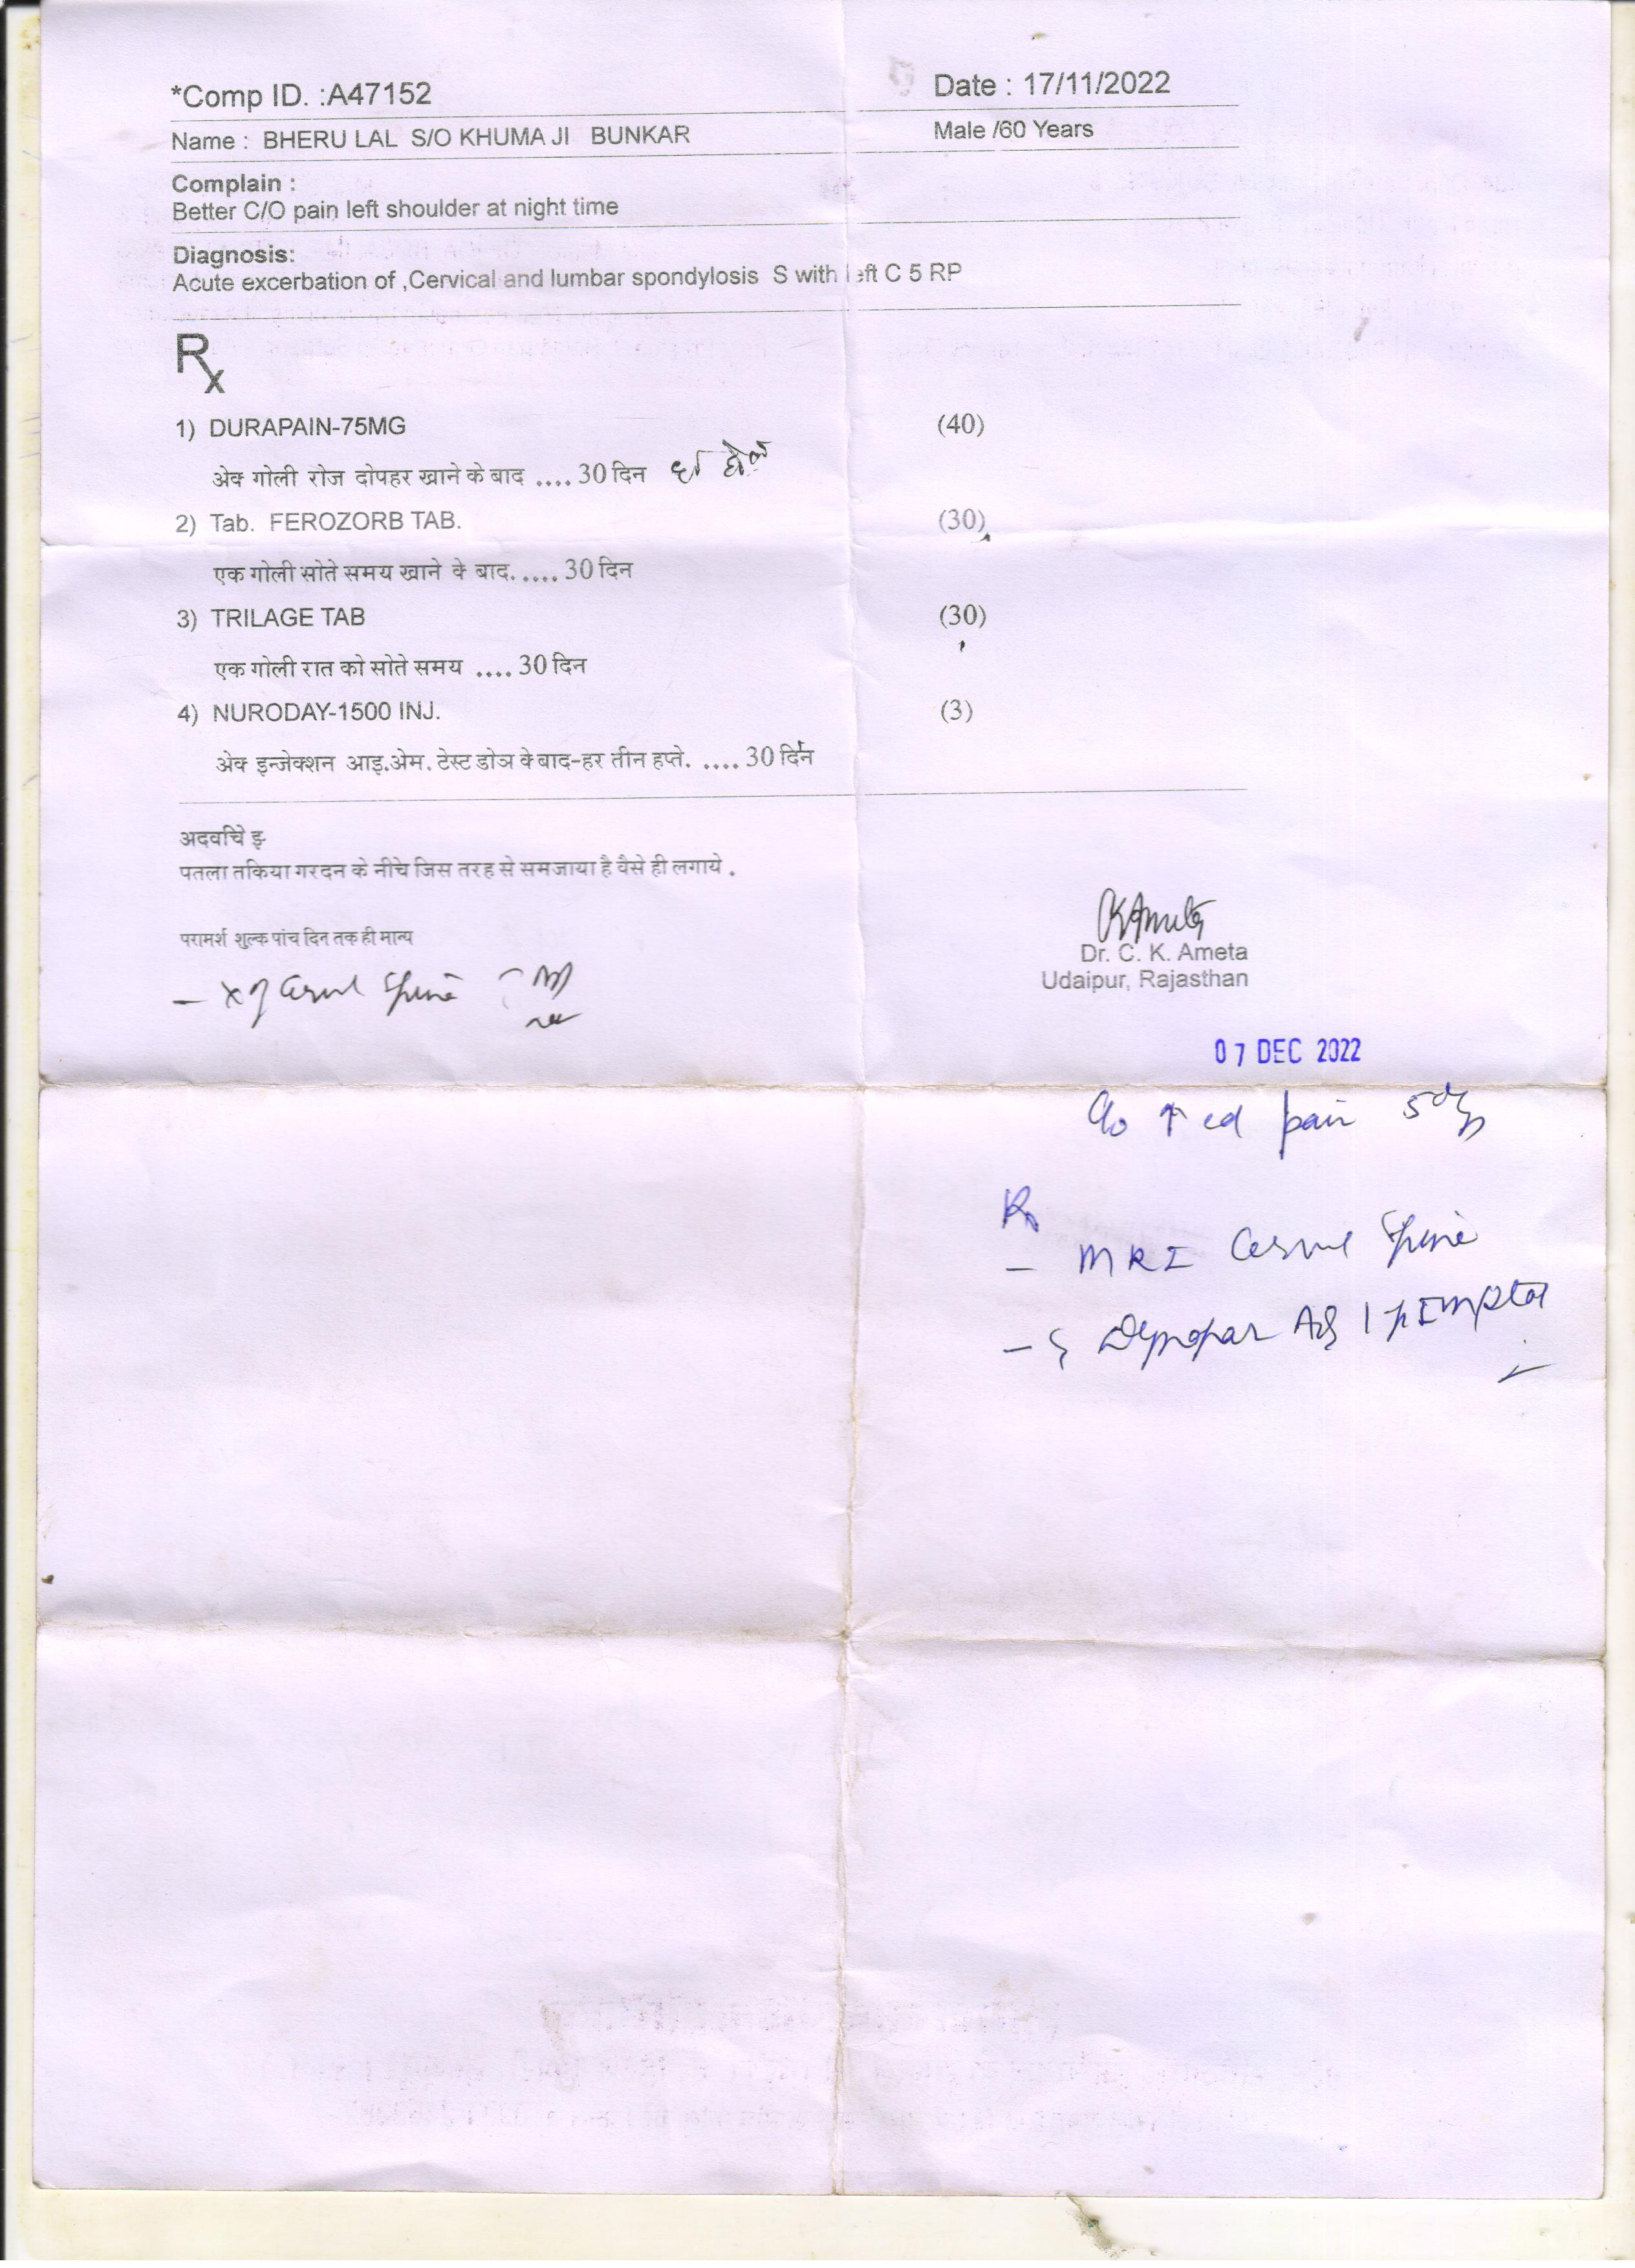 *Comp ID. :A47152
Date : 17/11/2022
Name : BHERU LAL S/O KHUMA JI BUNKAR
Male /60 Years
Complain :
Better C/O pain left shoulder at night time
Diagnosis:
Acute excerbation of ,Cervical and lumbar spondylosis S with left C 5 RP
Rx
1) DURAPAIN-75MG (40)
अेक गोली रोज दोपहर खाने के बाद .... 30 दिन
2) Tab. FEROZORB TAB. (30)
एक गोली सोते समय खाने के बाद. .... 30 दिन
3) TRILAGE TAB (30)
एक गोली रात को सोते समय .... 30 दिन
4) NURODAY-1500 INJ. (3)
अेक इन्जेक्शन आइ.अेम. टेस्ट डोज के बाद-हर तीन हप्ते. .... 30 दिन
अदवचिे इ
पतला तकिया गरदन के नीचे जिस तरह से समजाया है वैसे ही लगाये .
परामर्श शुल्क पांच दिन तक ही मान्य
Dr. C. K. Ameta
Udaipur, Rajasthan
07 DEC 2022
C/o ↑ ed pain 5 day
Rx
- MRI Spine